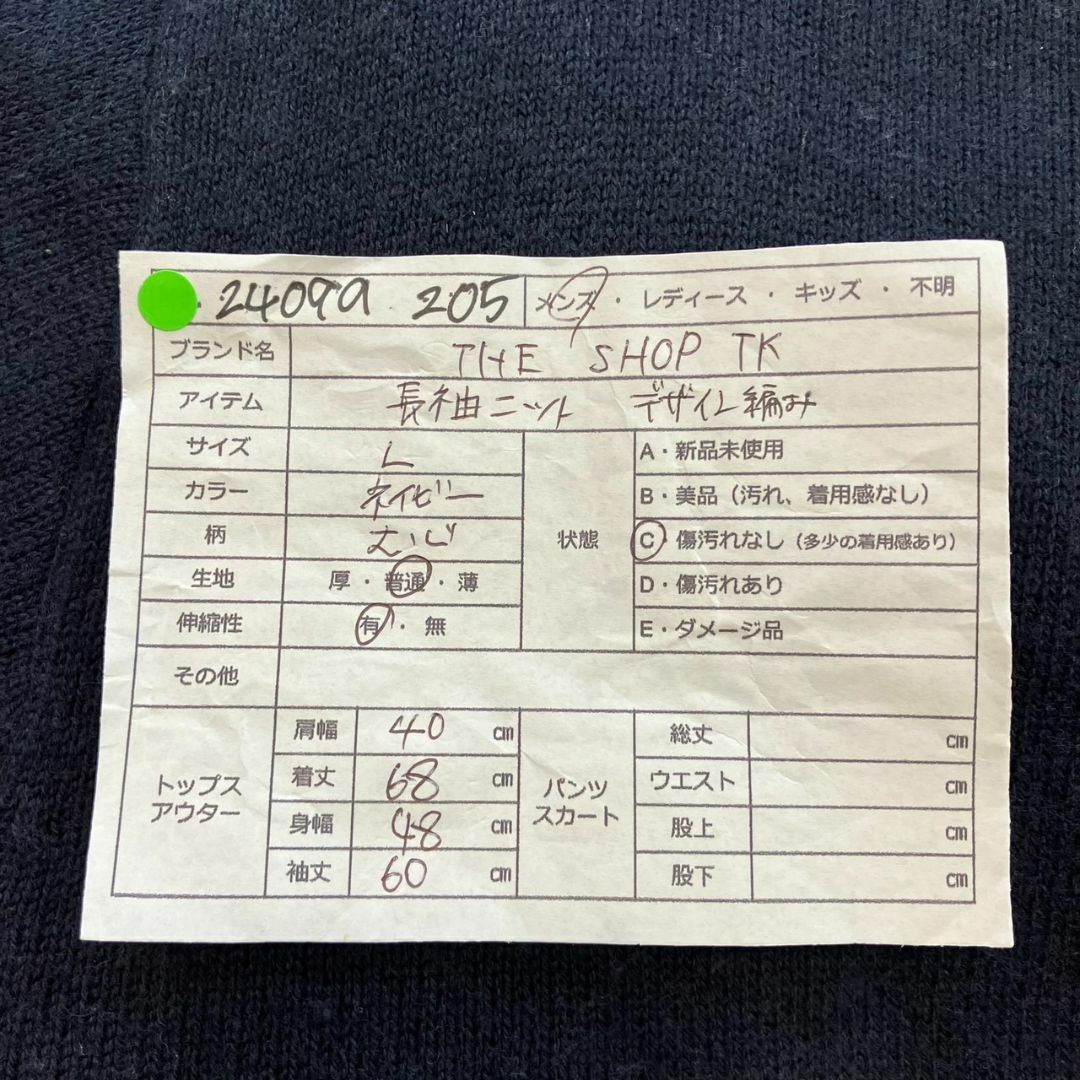 24099 205 メンズ・レディース・キッズ・不明
ブランド名 THE SHOP TK
アイテム 長袖ニット デザイン編み
サイズ L
カラー ネイビー
柄 むじ
生地 厚・普通・薄
伸縮性 有・無
状態
A・新品未使用
B・美品（汚れ、着用感なし）
C・傷汚れなし（多少の着用感あり）
D・傷汚れあり
E・ダメージ品
その他
トップス
アウター
肩幅 40 cm
着丈 68 cm
身幅 48 cm
袖丈 60 cm
パンツ
スカート
総丈 cm
ウエスト cm
股上 cm
股下 cm